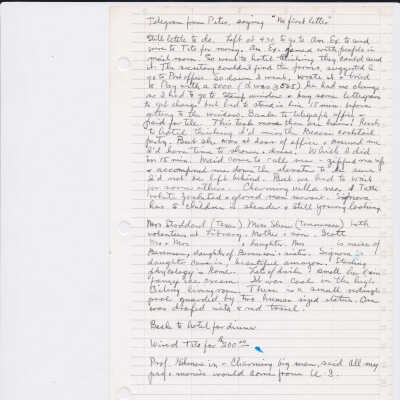 Telegram from Peter, saying "No first letter"
Still little to do. Left at 4:30 to go to Am. Ex. to send
wire to Tito for money. Am. Ex. jammed with people in
rest room. So went to hotel thinking they could send
it. The secretary couldn't find the forms, suggested I
go to Post office. So down I went, wrote it & tried
to Pay with a 5000 ( it was 3,585) he had no change -
so I had to go to Stamp window & buy some lettergrams
to get change but had to stand in line 15 min. before
getting to the window. Back to telegraph office &
paid for tele. This took more than one hour! Rush
to hotel thinking I'd miss the Reason cocktail
party. But she was at door of office & assured me
I'd have time to shower & dress. Which I did
in 15 min. Maid came to call me - zipped me up
& accompanied me down the elevator to be sure
I'd not be left behind. But we had to wait
for some others. Charming villa near
white
has 10 children is slender & still young looking.
Mrs Stoddard (Texas) Miss Shaw (Tennessee) both
volunteers at Library. Mother & son. Scott
Mr & Mrs , daughter. Mrs is niece of
daughter of sister. Signora
daughter came in, beautiful amazon, studing
physiology in Rome. Lots of drinks & small
fancy ice cream. It was cool on the high
living room. There is a small
pool guarded by two human sized statues. One
was draped with a red towel.
Back to hotel for dinner
Wired Tito for $200.00
Prof. Holmes in - Charming big man, said all my
prof. monies would come from U. S.